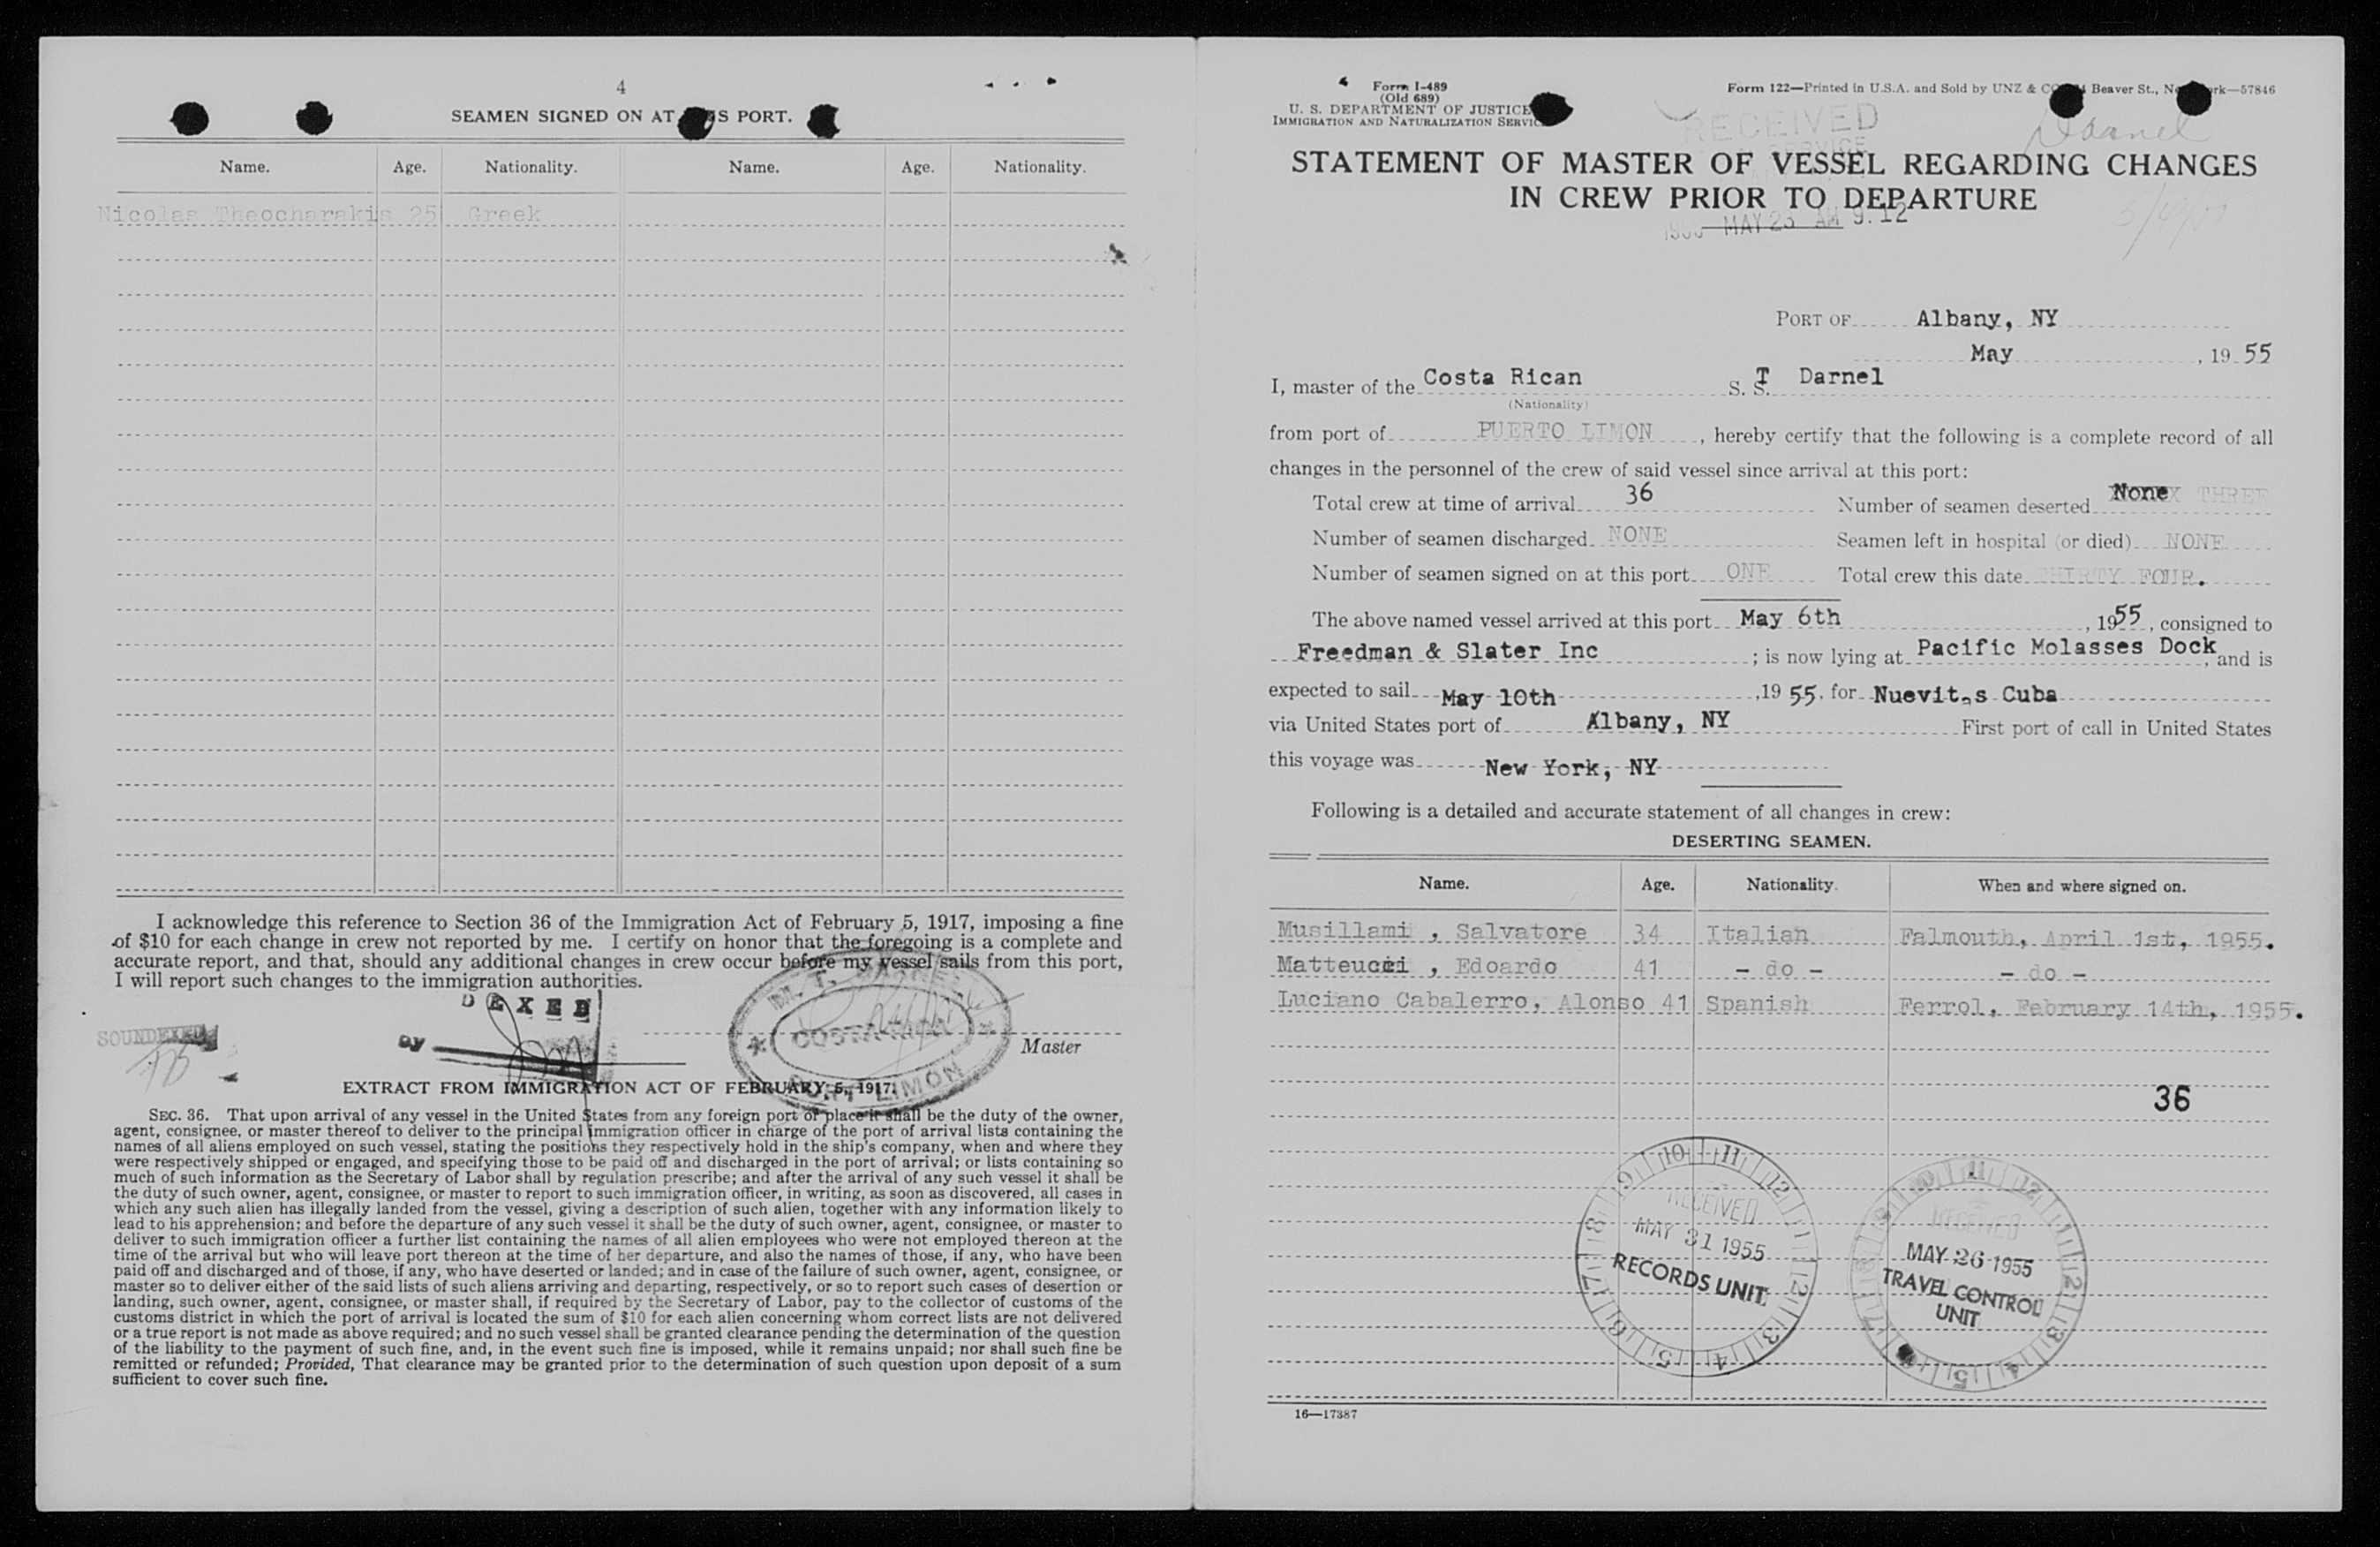 4
SEAMEN SIGNED ON AT THIS PORT.
Name. Age. Nationality. Name. Age. Nationality.
Nicolas Theocharakis 25 Greek
I acknowledge this reference to Section 36 of the Immigration Act of February 5, 1917, imposing a fine
of $10 for each change in crew not reported by me. I certify on honor that the foregoing is a complete and
accurate report, and that, should any additional changes in crew occur before my vessel sails from this port,
I will report such changes to the immigration authorities.
DEXED
SOUNDEXED
By
M. T. DARNEL
COSTA-RICA
LIMON
Master
EXTRACT FROM IMMIGRATION ACT OF FEBRUARY 5, 1917.
SEC. 36. That upon arrival of any vessel in the United States from any foreign port or place it shall be the duty of the owner,
agent, consignee, or master thereof to deliver to the principal immigration officer in charge of the port of arrival lists containing the
names of all aliens employed on such vessel, stating the positions they respectively hold in the ship's company, when and where they
were respectively shipped or engaged, and specifying those to be paid off and discharged in the port of arrival; or lists containing so
much of such information as the Secretary of Labor shall by regulation prescribe; and after the arrival of any such vessel it shall be
the duty of such owner, agent, consignee, or master to report to such immigration officer, in writing, as soon as discovered, all cases in
which any such alien has illegally landed from the vessel, giving a description of such alien, together with any information likely to
lead to his apprehension; and before the departure of any such vessel it shall be the duty of such owner, agent, consignee, or master to
deliver to such immigration officer a further list containing the names of all alien employees who were not employed thereon at the
time of the arrival but who will leave port thereon at the time of her departure, and also the names of those, if any, who have been
paid off and discharged and of those, if any, who have deserted or landed; and in case of the failure of such owner, agent, consignee, or
master so to deliver either of the said lists of such aliens arriving and departing, respectively, or so to report such cases of desertion or
landing, such owner, agent, consignee, or master shall, if required by the Secretary of Labor, pay to the collector of customs of the
customs district in which the port of arrival is located the sum of $10 for each alien concerning whom correct lists are not delivered
or a true report is not made as above required; and no such vessel shall be granted clearance pending the determination of the question
of the liability to the payment of such fine, and, in the event such fine is imposed, while it remains unpaid; nor shall such fine be
remitted or refunded; Provided, That clearance may be granted prior to the determination of such question upon deposit of a sum
sufficient to cover such fine.
Form I-489
(Old 689)
U. S. DEPARTMENT OF JUSTICE
IMMIGRATION AND NATURALIZATION SERVICE
Form 122—Printed in U.S.A. and Sold by UNZ & CO. Beaver St., New York—57846
RECEIVED
SERVICE
Darnel
STATEMENT OF MASTER OF VESSEL REGARDING CHANGES
IN CREW PRIOR TO DEPARTURE
MAY 23 AM 9:12
PORT OF Albany, NY
May, 19 55
I, master of the Costa Rican S. S. T Darnel
(Nationality)
from port of PUERTO LIMON, hereby certify that the following is a complete record of all
changes in the personnel of the crew of said vessel since arrival at this port:
Total crew at time of arrival 36 Number of seamen deserted None THREE
Number of seamen discharged NONE Seamen left in hospital (or died) NONE
Number of seamen signed on at this port ONE Total crew this date THIRTY FOUR.
The above named vessel arrived at this port May 6th, 1955, consigned to
Freedman & Slater Inc; is now lying at Pacific Molasses Dock, and is
expected to sail May 10th, 19 55. for Nuevitas Cuba
via United States port of Albany, NY First port of call in United States
this voyage was New York, NY
Following is a detailed and accurate statement of all changes in crew:
DESERTING SEAMEN.
Name. Age. Nationality. When and where signed on.
Musillami , Salvatore 34 Italian Falmouth, April 1st, 1955.
Matteucci , Edoardo 41 - do - - do -
Luciano Cabalerro, Alonso 41 Spanish Ferrol, February 14th, 1955.
36
RECEIVED
MAY 31 1955
RECORDS UNIT
RECEIVED
MAY 26 1955
TRAVEL CONTROL
UNIT
16—17387